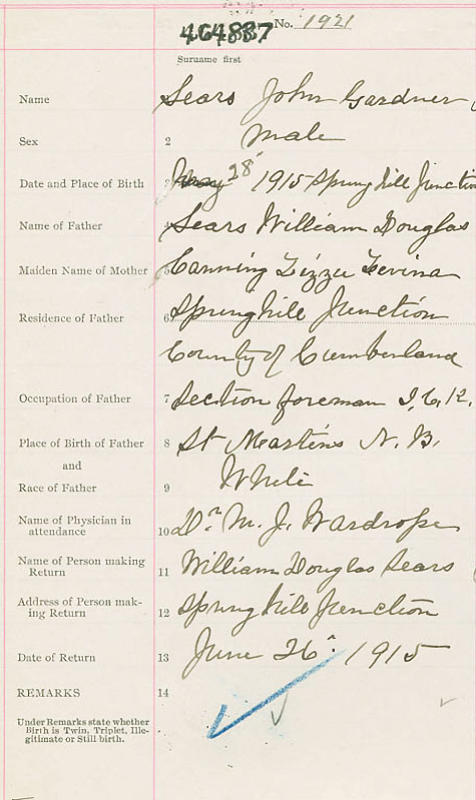 464887 No. 1921
Surname first
Name Sears John Gardner
Sex 2 Male
Date and Place of Birth 3 May 28 1915 Springhill Junction
Name of Father 4 Sears William Douglas
Maiden Name of Mother 5 Canning Lizzie Levina
Residence of Father 6 Springhill Junction
County of Cumberland
Occupation of Father 7 Section foreman I.C.R.
Place of Birth of Father 8 St Martins N.B.
and
Race of Father 9 White
Name of Physician in
attendance 10 Dr. M. J. Wardrope
Name of Person making
Return 11 William Douglas Sears
Address of Person mak-
ing Return 12 Spring hill Junction
Date of Return 13 June 26. 1915
REMARKS 14
Under Remarks state whether
Birth is Twin, Triplet, Ille-
gitimate or Still birth.